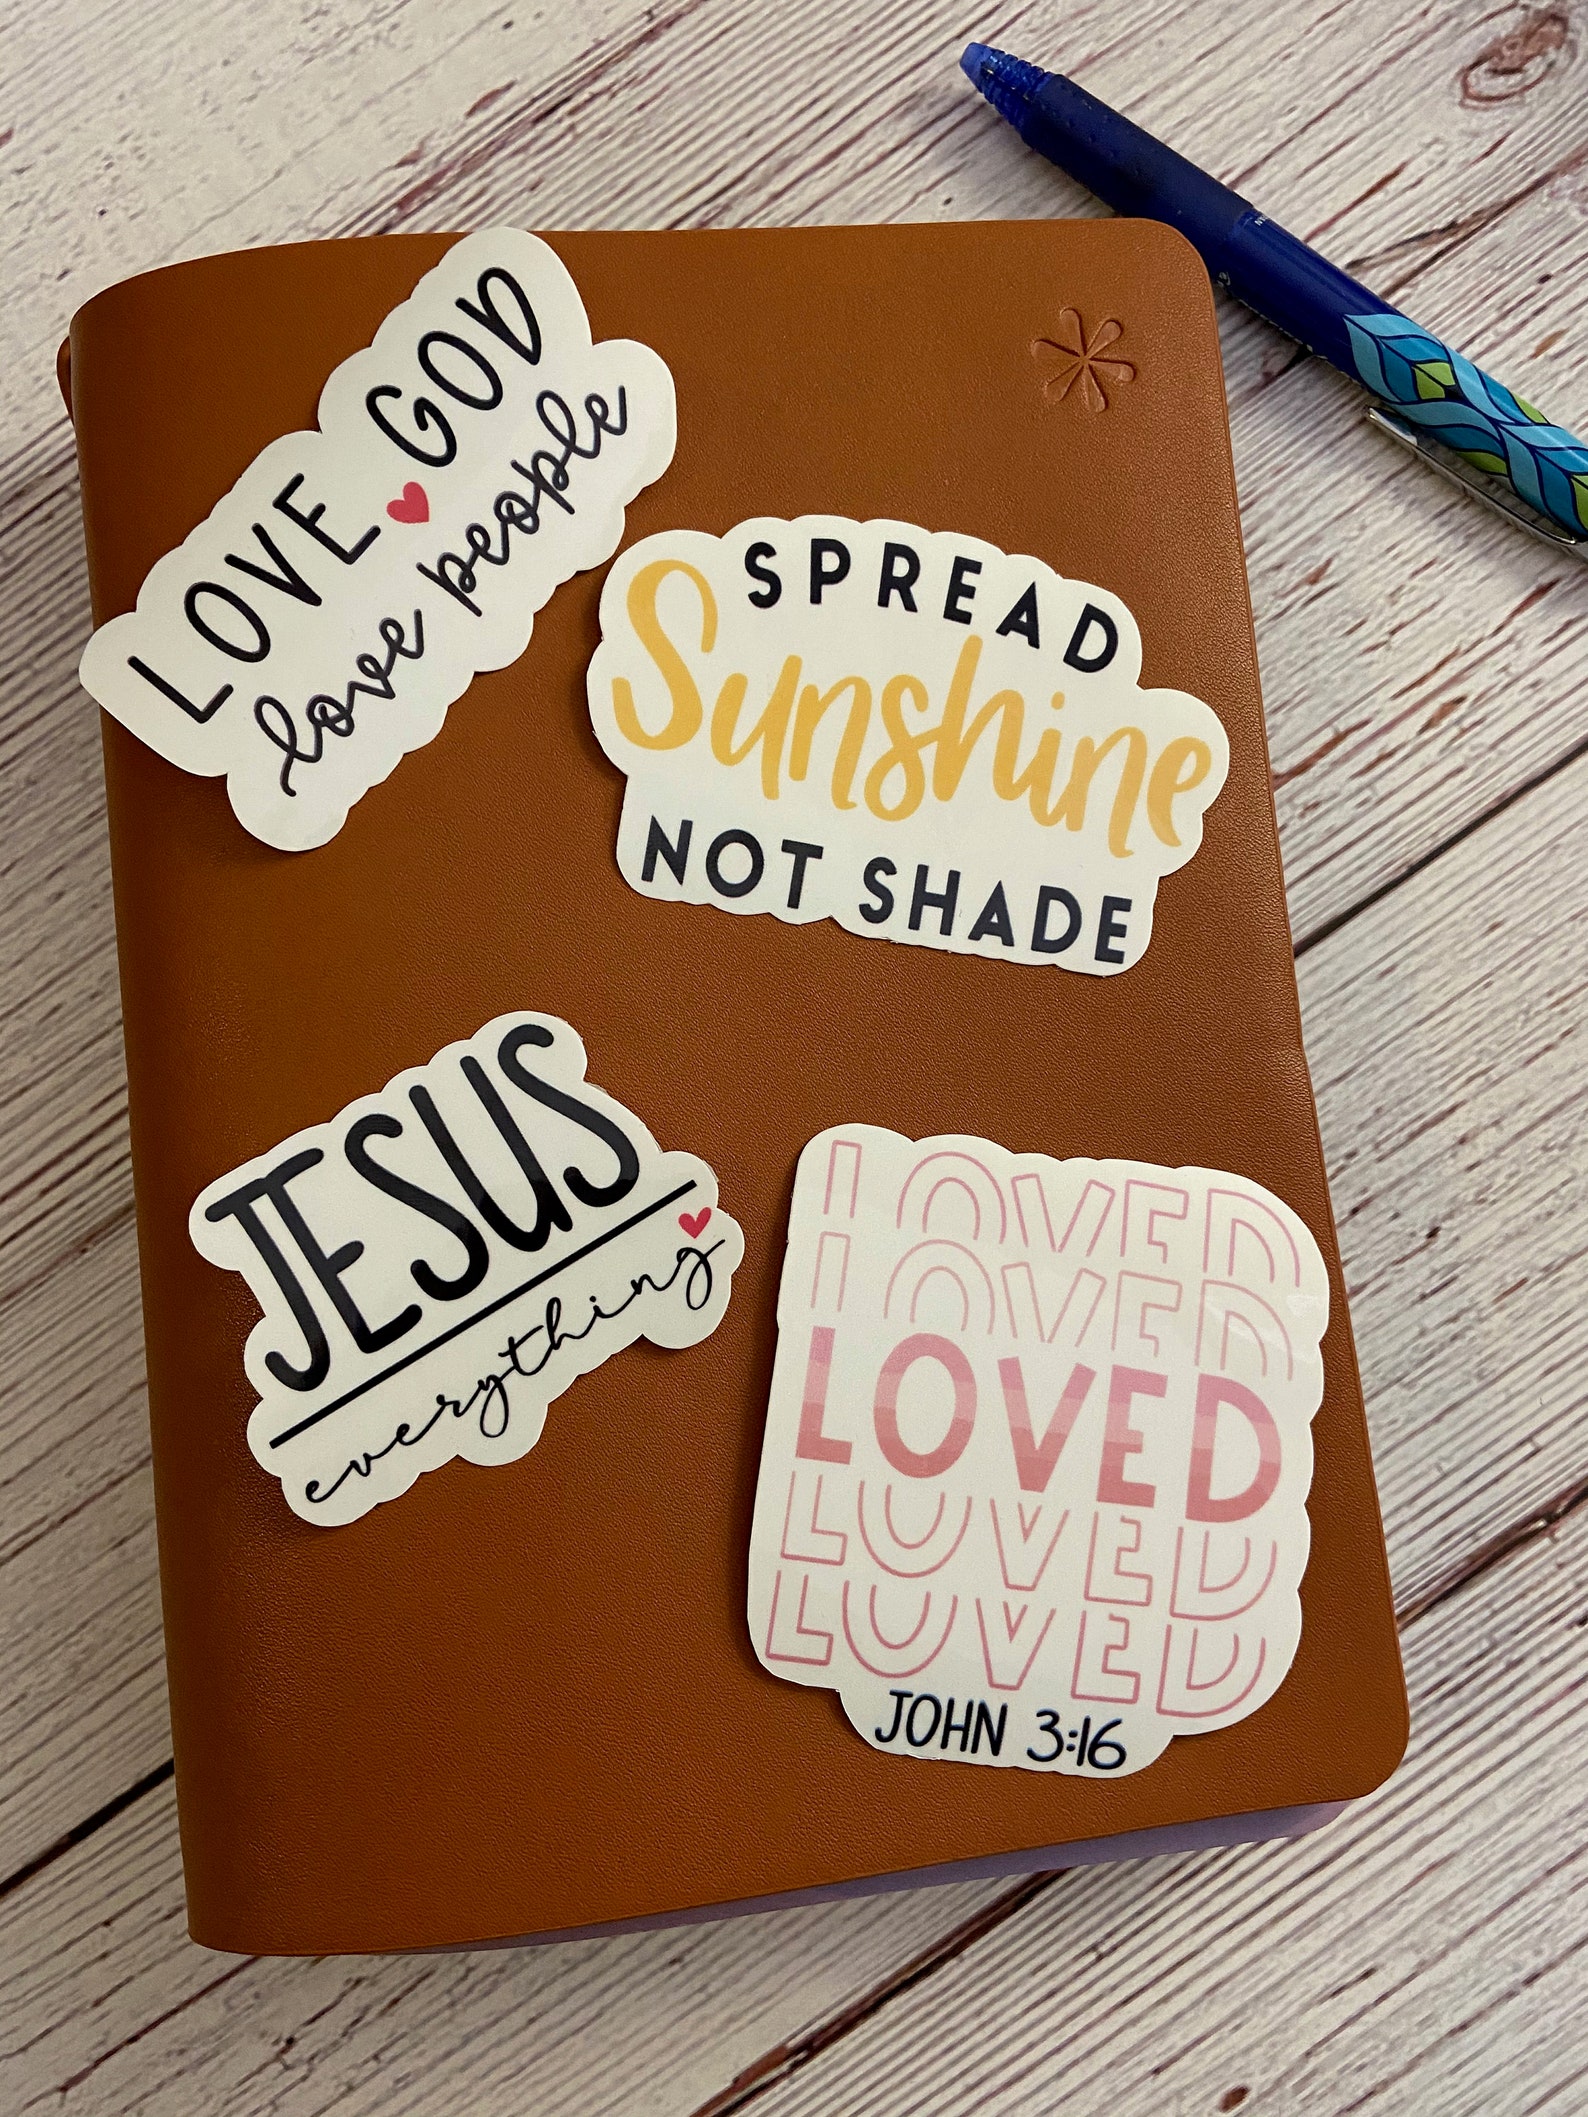 LOVE GOD
love people
SPREAD
Sunshine
NOT SHADE
JESUS
everything
LOVED
LOVED
LOVED
LOVED
LOVED
JOHN 3:16